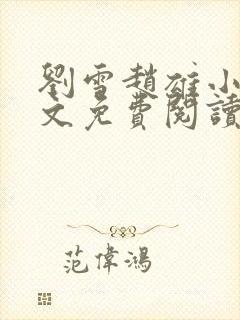 劉雪趙雄小
文免費閱讀
范偉鴻